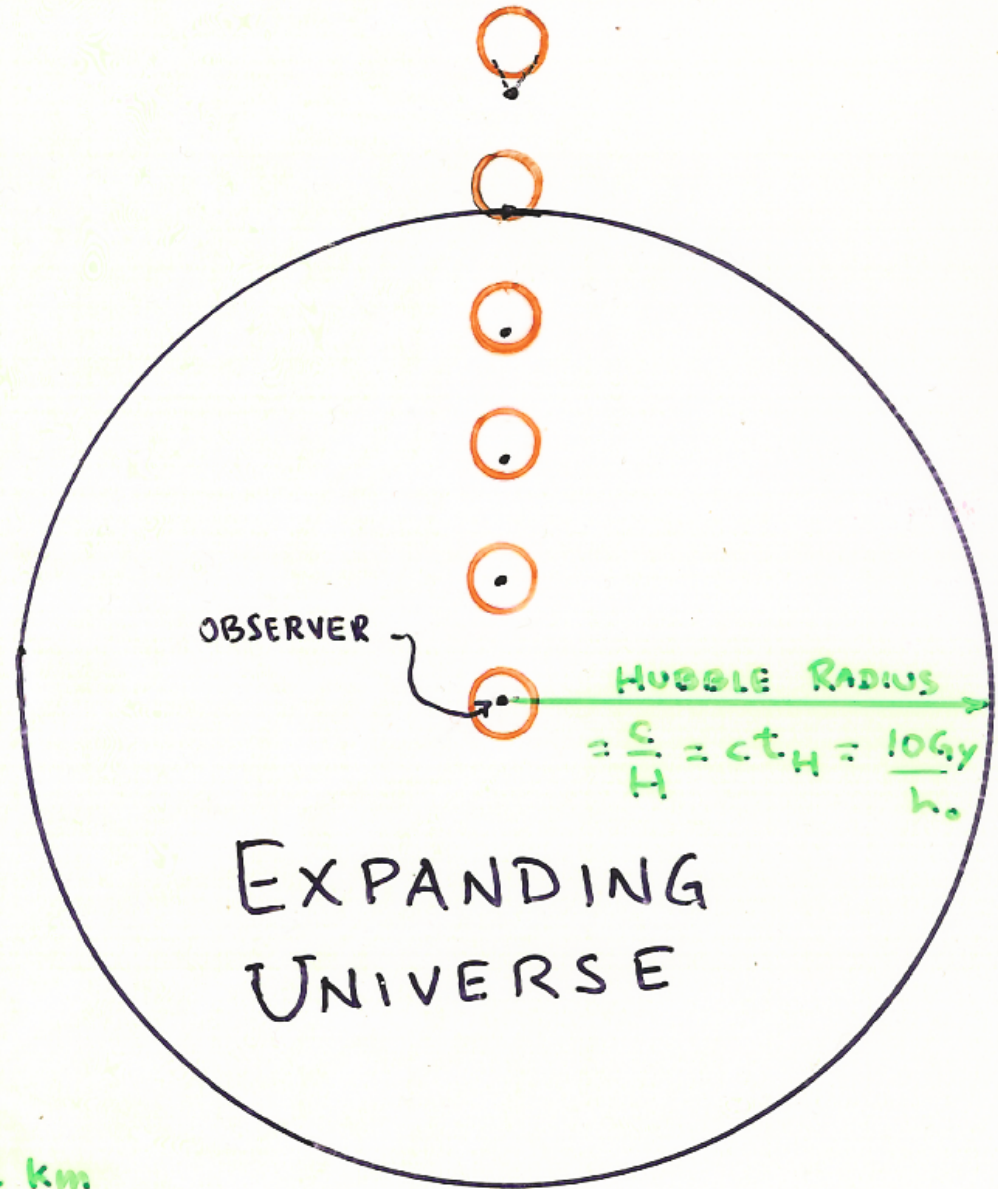 OBSERVER
HUBBLE RADIUS
= c/H = ct_H = 10Gy/h₀
EXPANDING
UNIVERSE
km